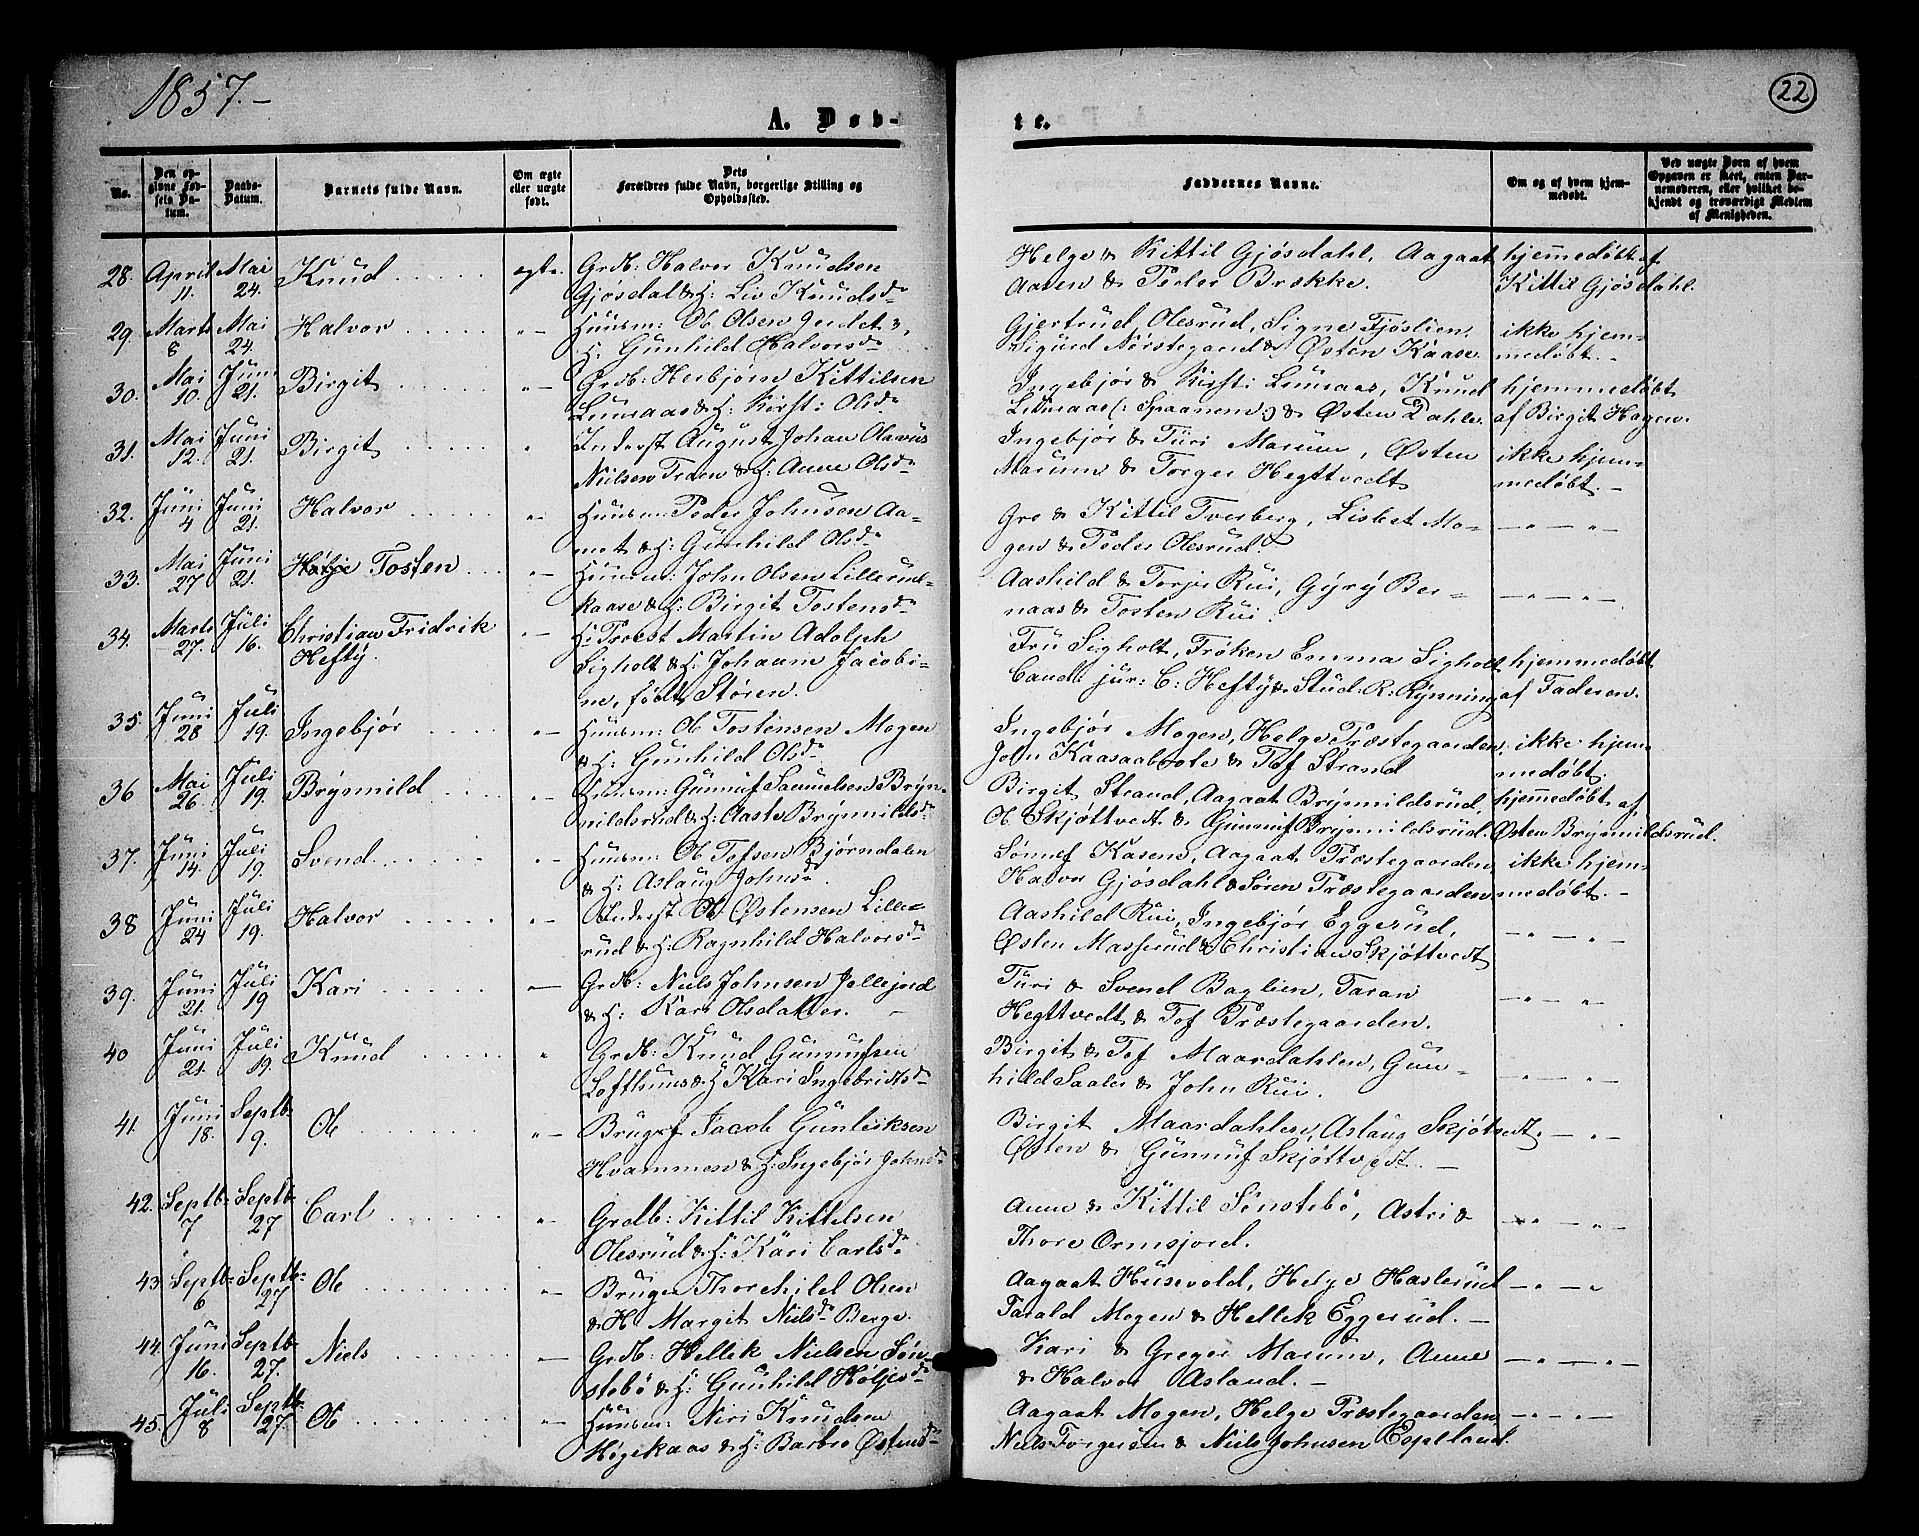 1857.-
22
A. Døb-
te.
No.
Den op-
givne Fød-
sels Da-
tum.
Daabs-
Datum.
Barnets fulde Navn.
Om ægte
eller uægte
født.
Dets
Forældres fulde Navn, borgerlige Stilling og
Opholdssted.
Faddernes Navne.
Om og af hvem hjem-
medøbt.
Ved uægte Born af hvem
Opgaven er skeet, enten Bar-
nemoderen, eller hvilket be-
kjendt og troværdigt Medlem
af Menigheden.
28. April 11. Mai 24. Knud ægte. Grdb: Halvor Knudsen
Gjøsdal & H: Liv Knudsdr
Helge & Kittil Gjøsdahl, Aagaat
Aasen & Peder Brække.
hjemmedøbt af
Kittil Gjøsdahl.
29. Marts 8 Mai 24. Halvor "— Huusm: Ole Olsen
H: Gunhild Halvorsdr
Gjertrud Olesrud, Signe Fjøslien.
Sigurd Nørstegaard & Østen Kaase.
ikke hjem-
medøbt.-
30. Mai 10. Juni 21. Birgit "— Grdb: Herbjørn Kittilsen
Liimaas & H: Kirsti Olsdr
Ingebjør & Kirsti Liimaas, Knud
Liimaas & Østen Dahle.
hjemmedøbt
af Birgit Hagen.
31. Mai 12. Juni 21. Birgit " Inderst August Johan Olavus
Nielsen Traen & H: Anne Olsdr
Ingebjør & Turi Marum, Østen
Marum & Torger Hegttvedt
ikke hjem-
medøbt.-
32. Juni 4 Juni 21. Halvor "— Huusm: Peder Johnsen Aa-
mot & H: Gunhild Olsdr
Gro & Kittil Tverberg, Lisbet Mo-
gen & Peder Olesrud.
— " — " —
33. Mai 27 Juni 21. Høljе Tosten "— Huusm: John Olsen Lillerud-
kaase & H: Birgit Tostensdr
Aashild & Torje Rui, Gyry Ber-
naas & Tosten Rui.
— " — " —
34. Marts 27. Juli 16. Christian Fridrik
Hefty.
"— Hr Provst Martin Adolph
Sigholt & H: Johanne Jacobi-
ne, født Støren.
Fru Sigholt, Frøken Emma Sigholt
Cand: jur: C: Hefty & Stud. R: Rynning
hjemmedøbt
af Faderen.
35. Juni 28 Juli 19. Ingebjør "— Huusm: Ole Tostensen Mogen
& H: Gunhild Olsdr
Ingebjør Mogen, Helge Præstegaarden,
John Kaasaabote & Tof Strand
ikke hjem-
medøbt.
36 Mai 26. Juli 19. Brynmild "— Huusm: Gunnuf Samuelsen Bryn-
mildsrud & H: Aaste Brynmildsdr
Birgit Strand, Aagaat Brynmildsrud,
Ole Skjøttvedt & Gunnuf Brynmildsrud.
hjemmedøbt af
Østen Brynmildsrud.
37. Juni 14. Juli 19. Svend "— Huusm: Ole Tofsen Bjørndalen
& H: Aslaug Johnsdr.
Sønnef Kasen, Aagaat Præstegaarden
Halvor Gjøsdahl & Søren Præstegaarden
ikke hjem-
medøbt.-
38 Juni 24 Juli 19. Halvor "— Inderst Ole Østensen Lille-
rud & H: Ragnhild Halvorsdr
Aashild Rui, Ingebjør Eggerud,
Østen Masserud & Christian Skjøttvedt
— " — " —
39. Juni 21. Juli 19 Kari — Grdb: Niels Johnsen Jellejord
& H: Kari Olsdatter.
Turi & Svend Baglien, Taran
Hegttvedt & Tof Præstegaarden.
— " — " —
40 Juni 21. Juli 19. Knud " Grdb: Knud Gunnufsen
Lofthuus & H Kari Ingebritsdr
Birgit & Tof Maardahlen, Gun-
hild Saales & John Rui.
— " — " —
41. Juni 18. Septb 9. Ole "— Bruger Jacob Gunleiksen
Hvammen & H: Ingebjør Johnsdr
Birgit Maardahlen, Aslaug Skjøtvedt,
Østen & Gunnuf Skjøttvedt.
— " —
42. Septb 7 Septb 27 Carl "— Grdb: Kittil Kittelsen
Olesrud & H: Kari Carlsdr
Anne & Kittil Sønstebø, Astri &
Thore Ormsjord.
— " — " —
43. Septb 6 Septb 27 Ole "— Bruger Thorchild Olsen
& H Margit Nielsdr Berge.
Aagaat Husevold, Helge Haslerud
Tarald Mogen & Hellek Eggerud.
— " — " —
44. Juni 16. Septb 27. Niels — Grdb: Hellek Nielsen Søn-
stebø & H: Gunhild Høljesdr
Kari & Greger Marum, Anne
& Halvor Asland.-
— " — " —
45. Juli 8 Septb 27. Ole "— Huusm: Niri Knudsen
Høgekaas & H: Barbro Østensdr
Aagaat Mogen, Helge Præstegaarden
Niels Torgersen & Niels Johnsen Espeland.
— " — " —